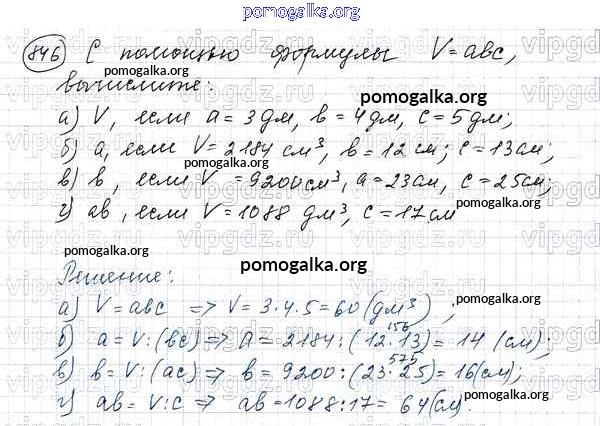 pomogalka.org
846 С помощью формулы V=abc,
вычислите:
pomogalka.org
pomogalka.org
а) V, если a = 3 дм, b = 4 дм, c = 5 дм;
б) a, если V = 2184 см³, b = 12 см; c = 13 см;
pomogalka.org
в) b, если V = 9200 см³, a = 23 см, c = 25 см;
г) ab, если V = 1088 дм³, c = 17 см
pomogalka.org
pomogalka.org
pomogalka.org
Решение:
pomogalka.org
а) V = abc => V = 3·4·5 = 60 (дм³),
156
б) a = V:(bc) => a = 2184:(12·13) = 14 (см);
575
в) b = V:(ac) => b = 9200:(23·25) = 16 (см);
г) ab = V:c => ab = 1088:17 = 64 (см).
pomogalka.org
pomogalka.org
vipgdz.ru